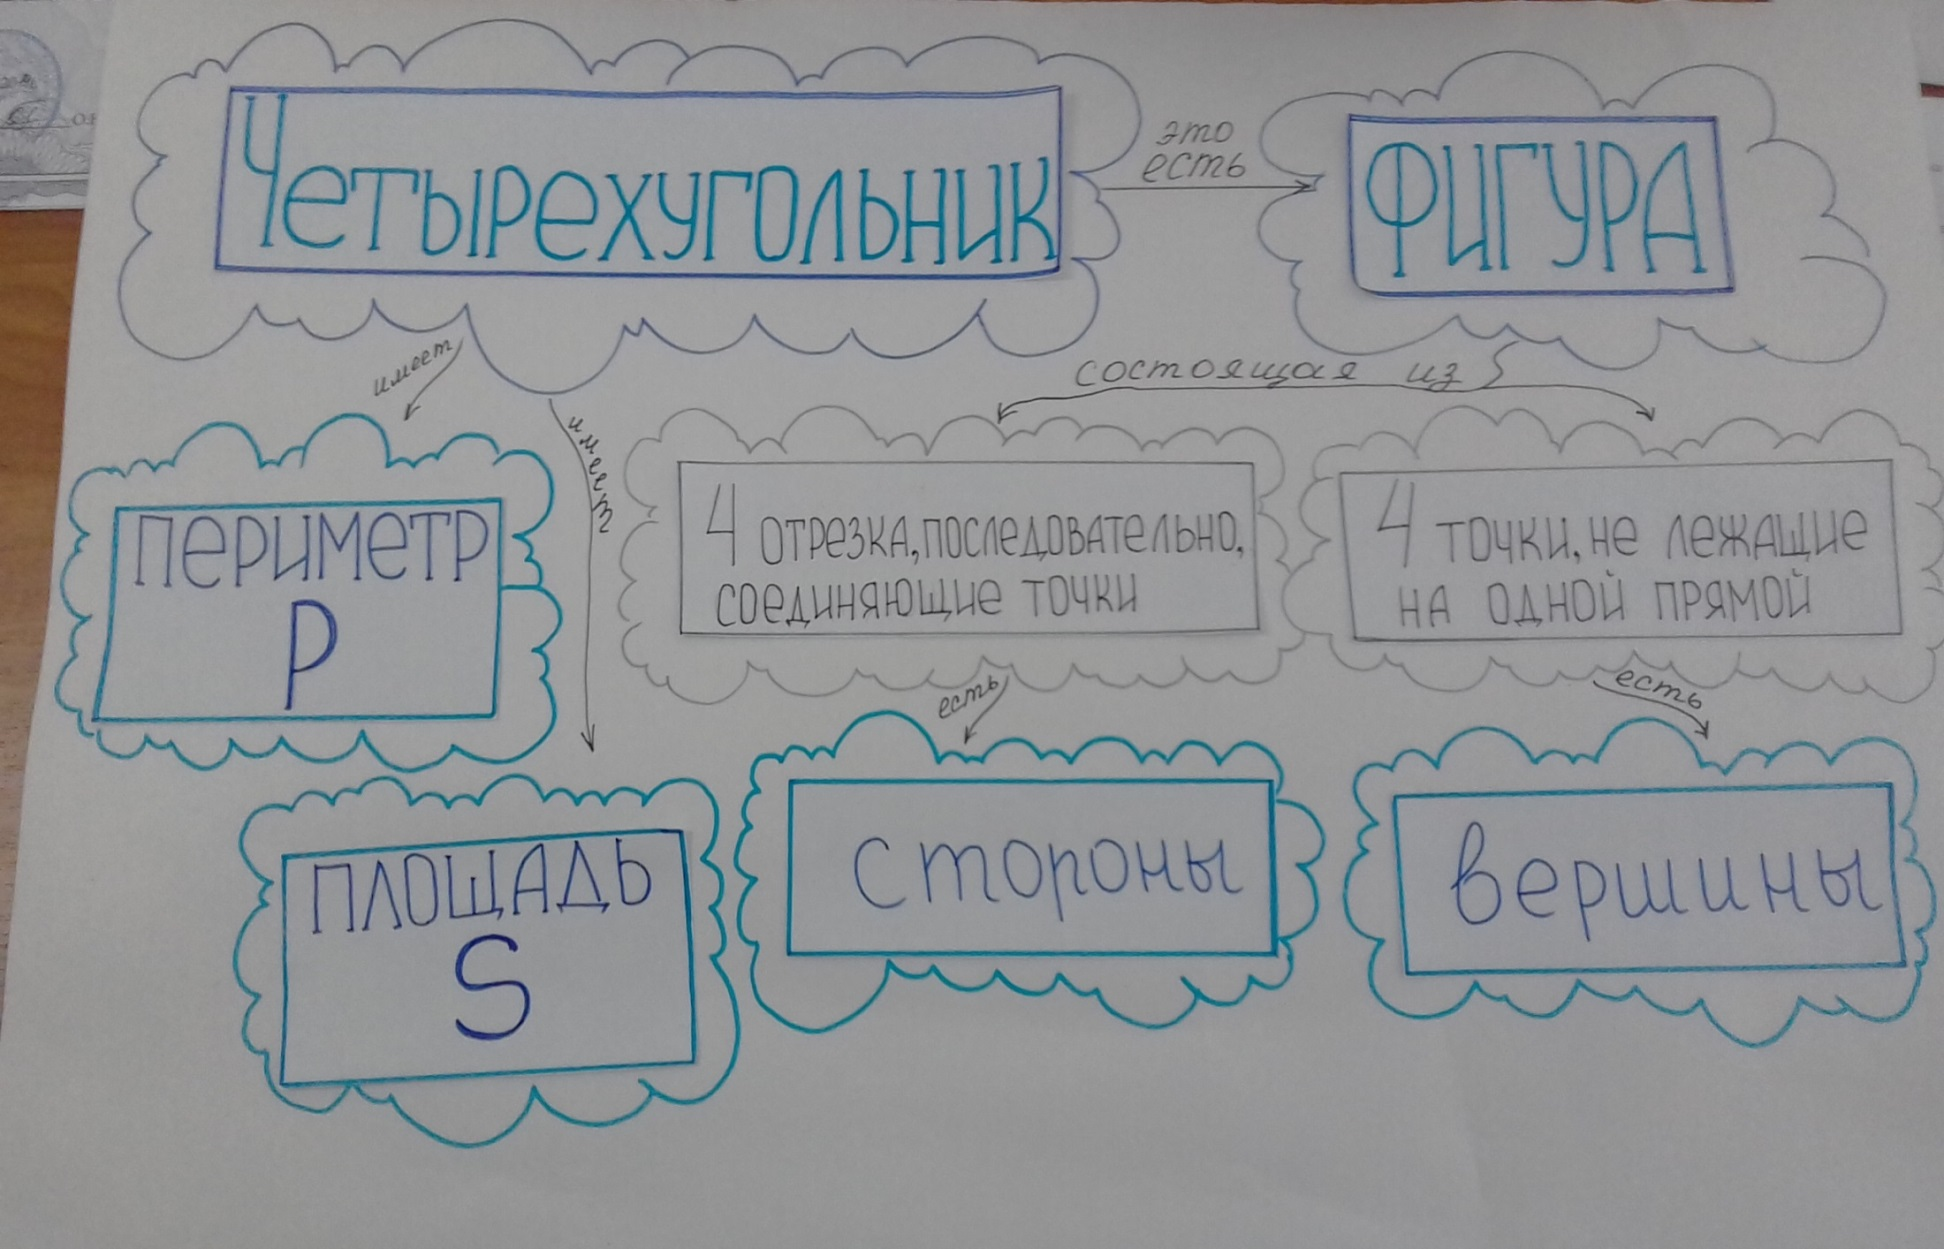 Четырехугольник
это
есть
ФИГУРА
имеет
имеет
состоящая из
ПЕРИМЕТР
P
4 ОТРЕЗКА, ПОСЛЕДОВАТЕЛЬНО,
СОЕДИНЯЮЩИЕ ТОЧКИ
4 ТОЧКИ, НЕ ЛЕЖАЩИЕ
НА ОДНОЙ ПРЯМОЙ
есть
есть
ПЛОЩАДЬ
S
стороны
вершины